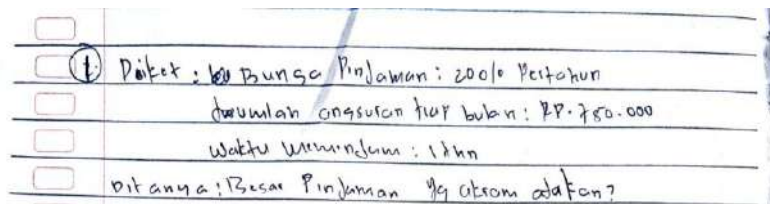 ① Diket : Bunga Pinjaman : 20% Pertahun
Jumlah angsuran tiap bulan : RP. 780.000
Waktu meminjam : 1 thn
Ditanya : Besar Pinjaman yg